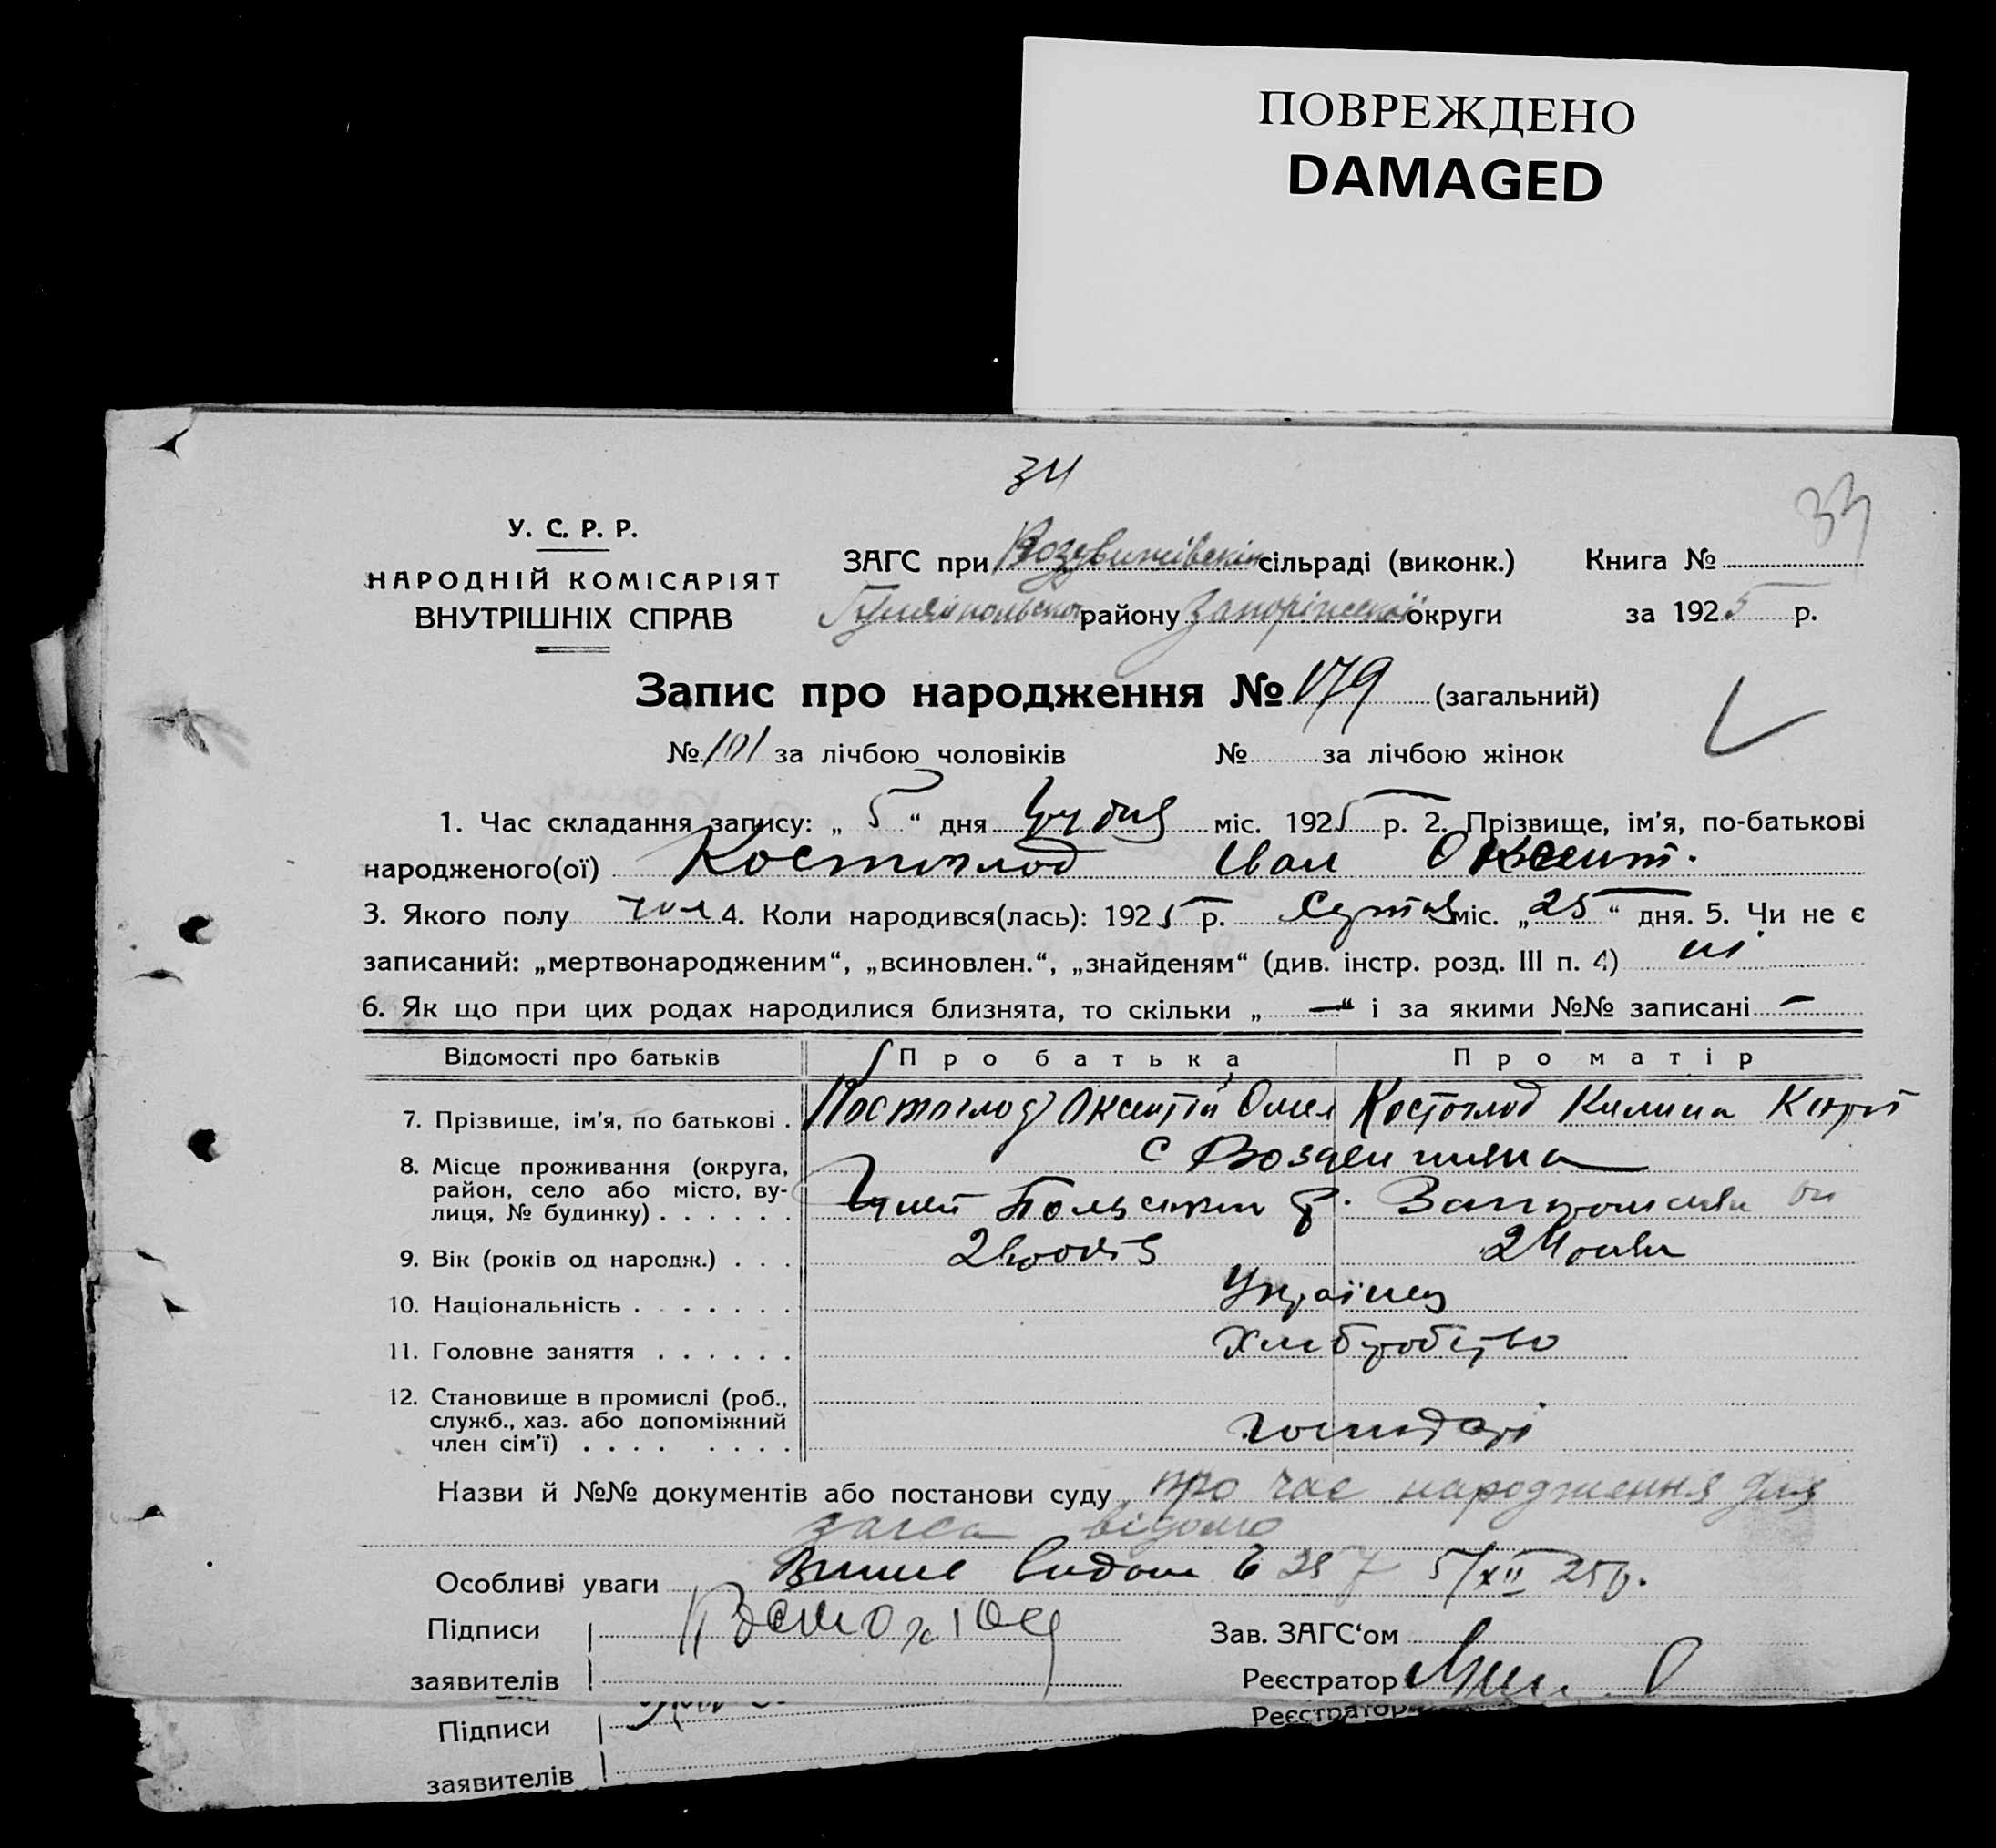 ПОВРЕЖДЕНО
DAMAGED
34
У. С. Р. Р.
НАРОДНІЙ КОМІСАРІЯТ
ВНУТРІШНІХ СПРАВ
ЗАГС при Воздвижівській сільраді (виконк.) Книга №
району Запоріжської округи за 1925 р.
Запис про народження № 179 (загальний)
№ 101 за лічбою чоловіків № за лічбою жінок
1. Час складання запису: „ 5 “ дня грудня міс. 1925 р. 2. Прізвище, ім’я, по-батькові
народженого(ої) Костоглод Іван Оксент.
3. Якого полу чол 4. Коли народився(лась): 1925 р. міс. „ 25 “ дня. 5. Чи не є
записаний: „мертвонародженим“, „всиновлен.“, „знайденям“ (див. інстр. розд. III п. 4) ні
6. Як що при цих родах народилися близнята, то скільки „ — “ і за якими №№ записані —
Відомості про батьків Про батька Про матір
7. Прізвище, ім’я, по батькові . Костоглод Оксентій Омел Костоглод Килина
8. Місце проживання (округа,
район, село або місто, ву-
лиця, № будинку) . . . . . .
с
р.
9. Вік (років од народж.) . . . 24
10. Національність . . . . . . . Українец
11. Головне заняття . . . . . . Хліборобство
12. Становище в промислі (роб.,
служб., хаз. або допоміжний
член сім’ї) . . . . . . . . господарі
Назви й №№ документів або постанови суду про час народження для
загса відомо
Особливі уваги 5/XII 25 р.
Підписи Костоглод Зав. ЗАГС‘ом
заявителів Реєстратор
Підписи Реєстратор
заявителів